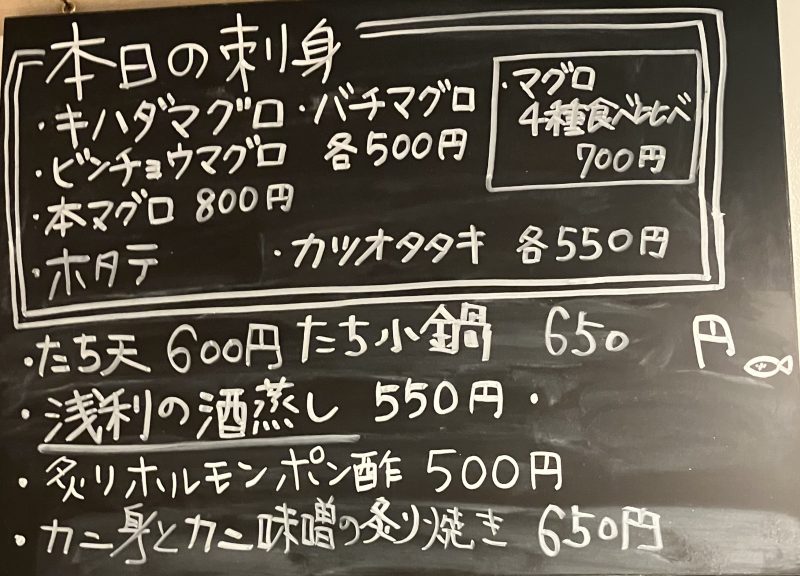 本日の刺身
・キハダマグロ ・バチマグロ
・ビンチョウマグロ 各500円
・本マグロ 800円
・ホタテ ・カツオタタキ 各550円
・マグロ
4種食べ比べ
700円
・たち天 600円 たち小鍋 650 円
・浅利の酒蒸し 550円・
・炙りホルモンポン酢 500円
・カニ身とカニ味噌の炙り焼き 650円